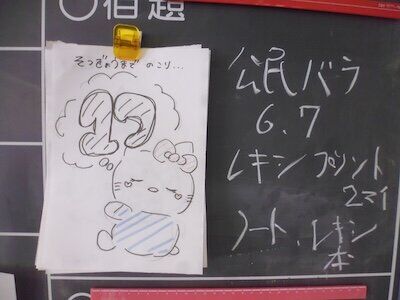 ○宿題
そつぎょうまで のこり...
17
公民バラ
6.7
レキシプリント
2マイ
ノート、レキシ
本